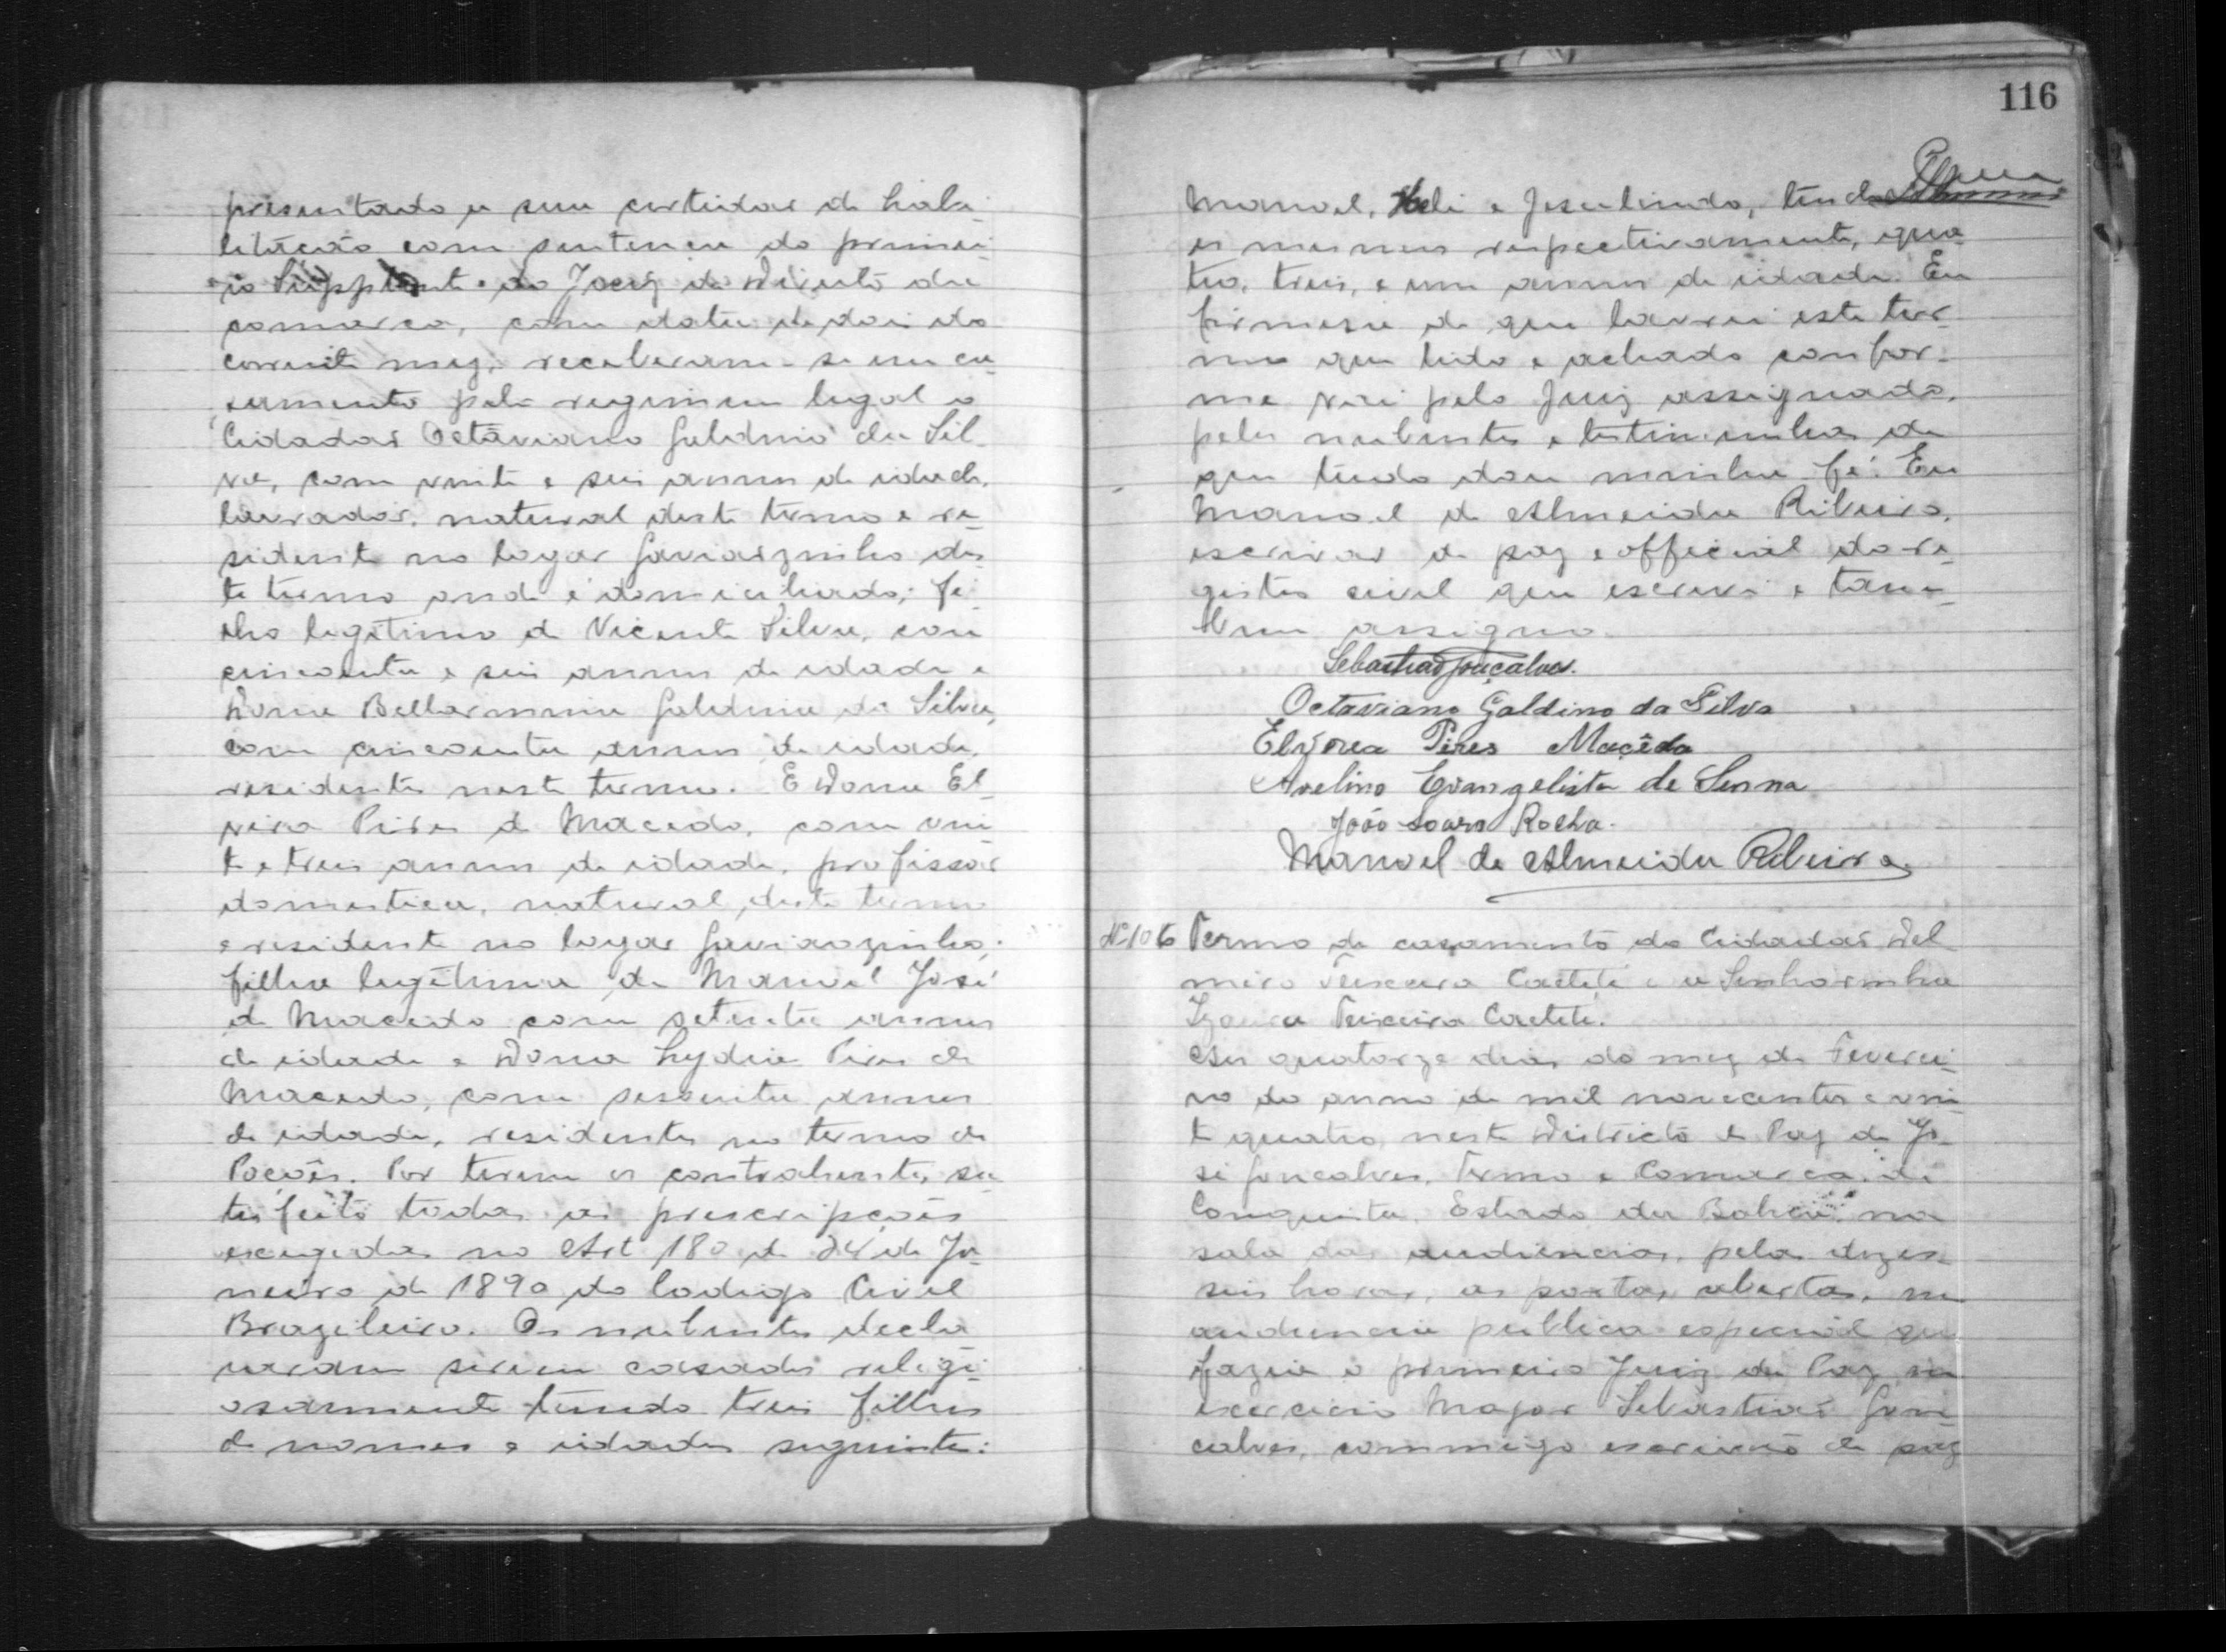 presentado a sua certidar de habi-
litação com sentença do primei-
ro Supplente do Juiz de Direito da
comarca, com data de dois do
corrente mez, receberam-se em ca-
samento pelo regimem legal o
Cidadar Octaviano Galdino da Sil-
va, com vinte e seis annos de idade,
lavrador, natural deste termo e re-
sidente no logar Gaviaozinho des-
te termo onde é domiciliado; fi-
lho legitimo de Vicente Silva, com
cincoenta e seis annos de idade e
Dona Bellarmina Galdina da Silva,
com cincoenta annos de idade,
residentes neste termo. E Dona El-
vira Pires de Macedo, com vin-
te e tres annos de idade, profissar
domestica, natural deste termo
e residente no logar Gaviaozinho;
filha legitima de Manoel José
de Macedo com setenta annos
de idade e Dona Lydia Pires de
Macedo, com sessenta annos
de idade, residentes no termo de
Poções. Por terem os contrahentes sa-
tisfeito todas as prescripções
exegidas no Art 180 de 24 de Ja-
neiro de 1890 do Codigo Civil
Brazileiro. Os nubentes decla-
raram serem casados religi-
osamente tendo tres filhos
de nomes e idades seguintes:
116
Manoel, Heli e Jesulindo, tendo
os mesmos respectivamente, qua-
tro, tres, e um annos de idade. Em
firmesa de que lavrei este ter-
mo que lido e achado confor-
me vai pelo Juiz assignado,
pelos nubentes e testimunhas de
que tudo dou minha fé. Eu
Manoel de Almeida Ribeiro,
escrivar de paz e official do re-
gistro civil que escrevi e tam-
bem assigno.
Sebastiao Gonçalves.
Octaviano Galdino da Silva
Elvirea Pires Macêdo
Avelino Evangelista de Senna
João Soares Rocha.
Manoel de Almeida Ribeiro.
Nº 106 Termo de casamento do Cidadar Del-
miro Teixeira Caeteté e a Senhorinha
Izaura Teixeira Caeteté.
Aos quatorze dias do mez de Feverei-
ro do anno de mil novecentos e vin-
te quatro, neste Districto de Paz de Jo-
sé Goncalves, Termo e Comarca de
Conquista, Estado da Bahia, na
sala das audiencias, pelas dezes-
seis horas, as portas abertas, em
audiencia publica especial que
fazia o primeiro Juiz de Paz em
excercicio Major Sebastiao Gon-
calves, commigo escrivão de paz